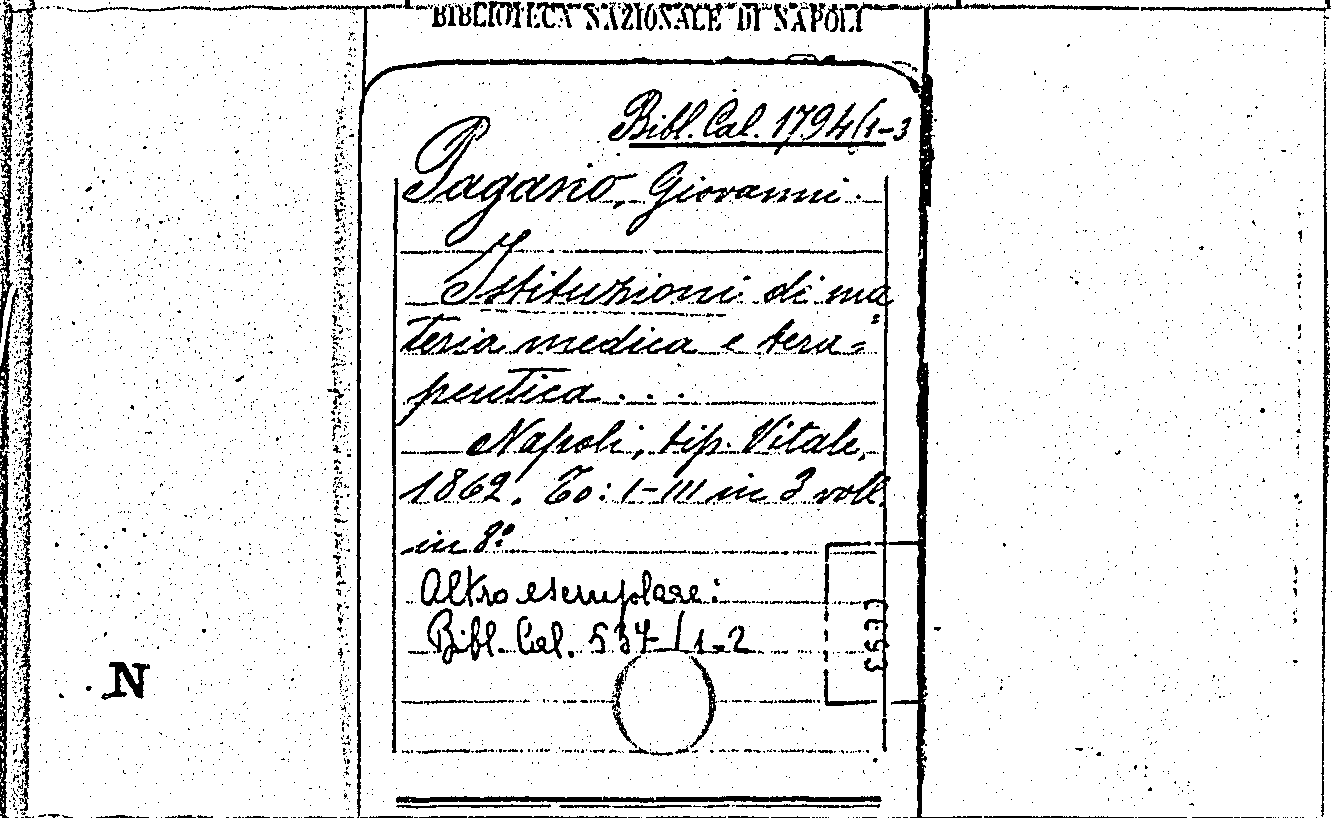 BIBLIOTECA NAZIONALE DI NAPOLI
Bibl. Cal. 1794/1-3
Pagano, Giovanni.
Istituzioni di ma=
teria medica e tera=
peutica . . .
Napoli, tip. Vitale,
1862. To: I-III in 3 voll.
in 8º
Altro esemplare:
Bibl. Cal. 537/1-2
N